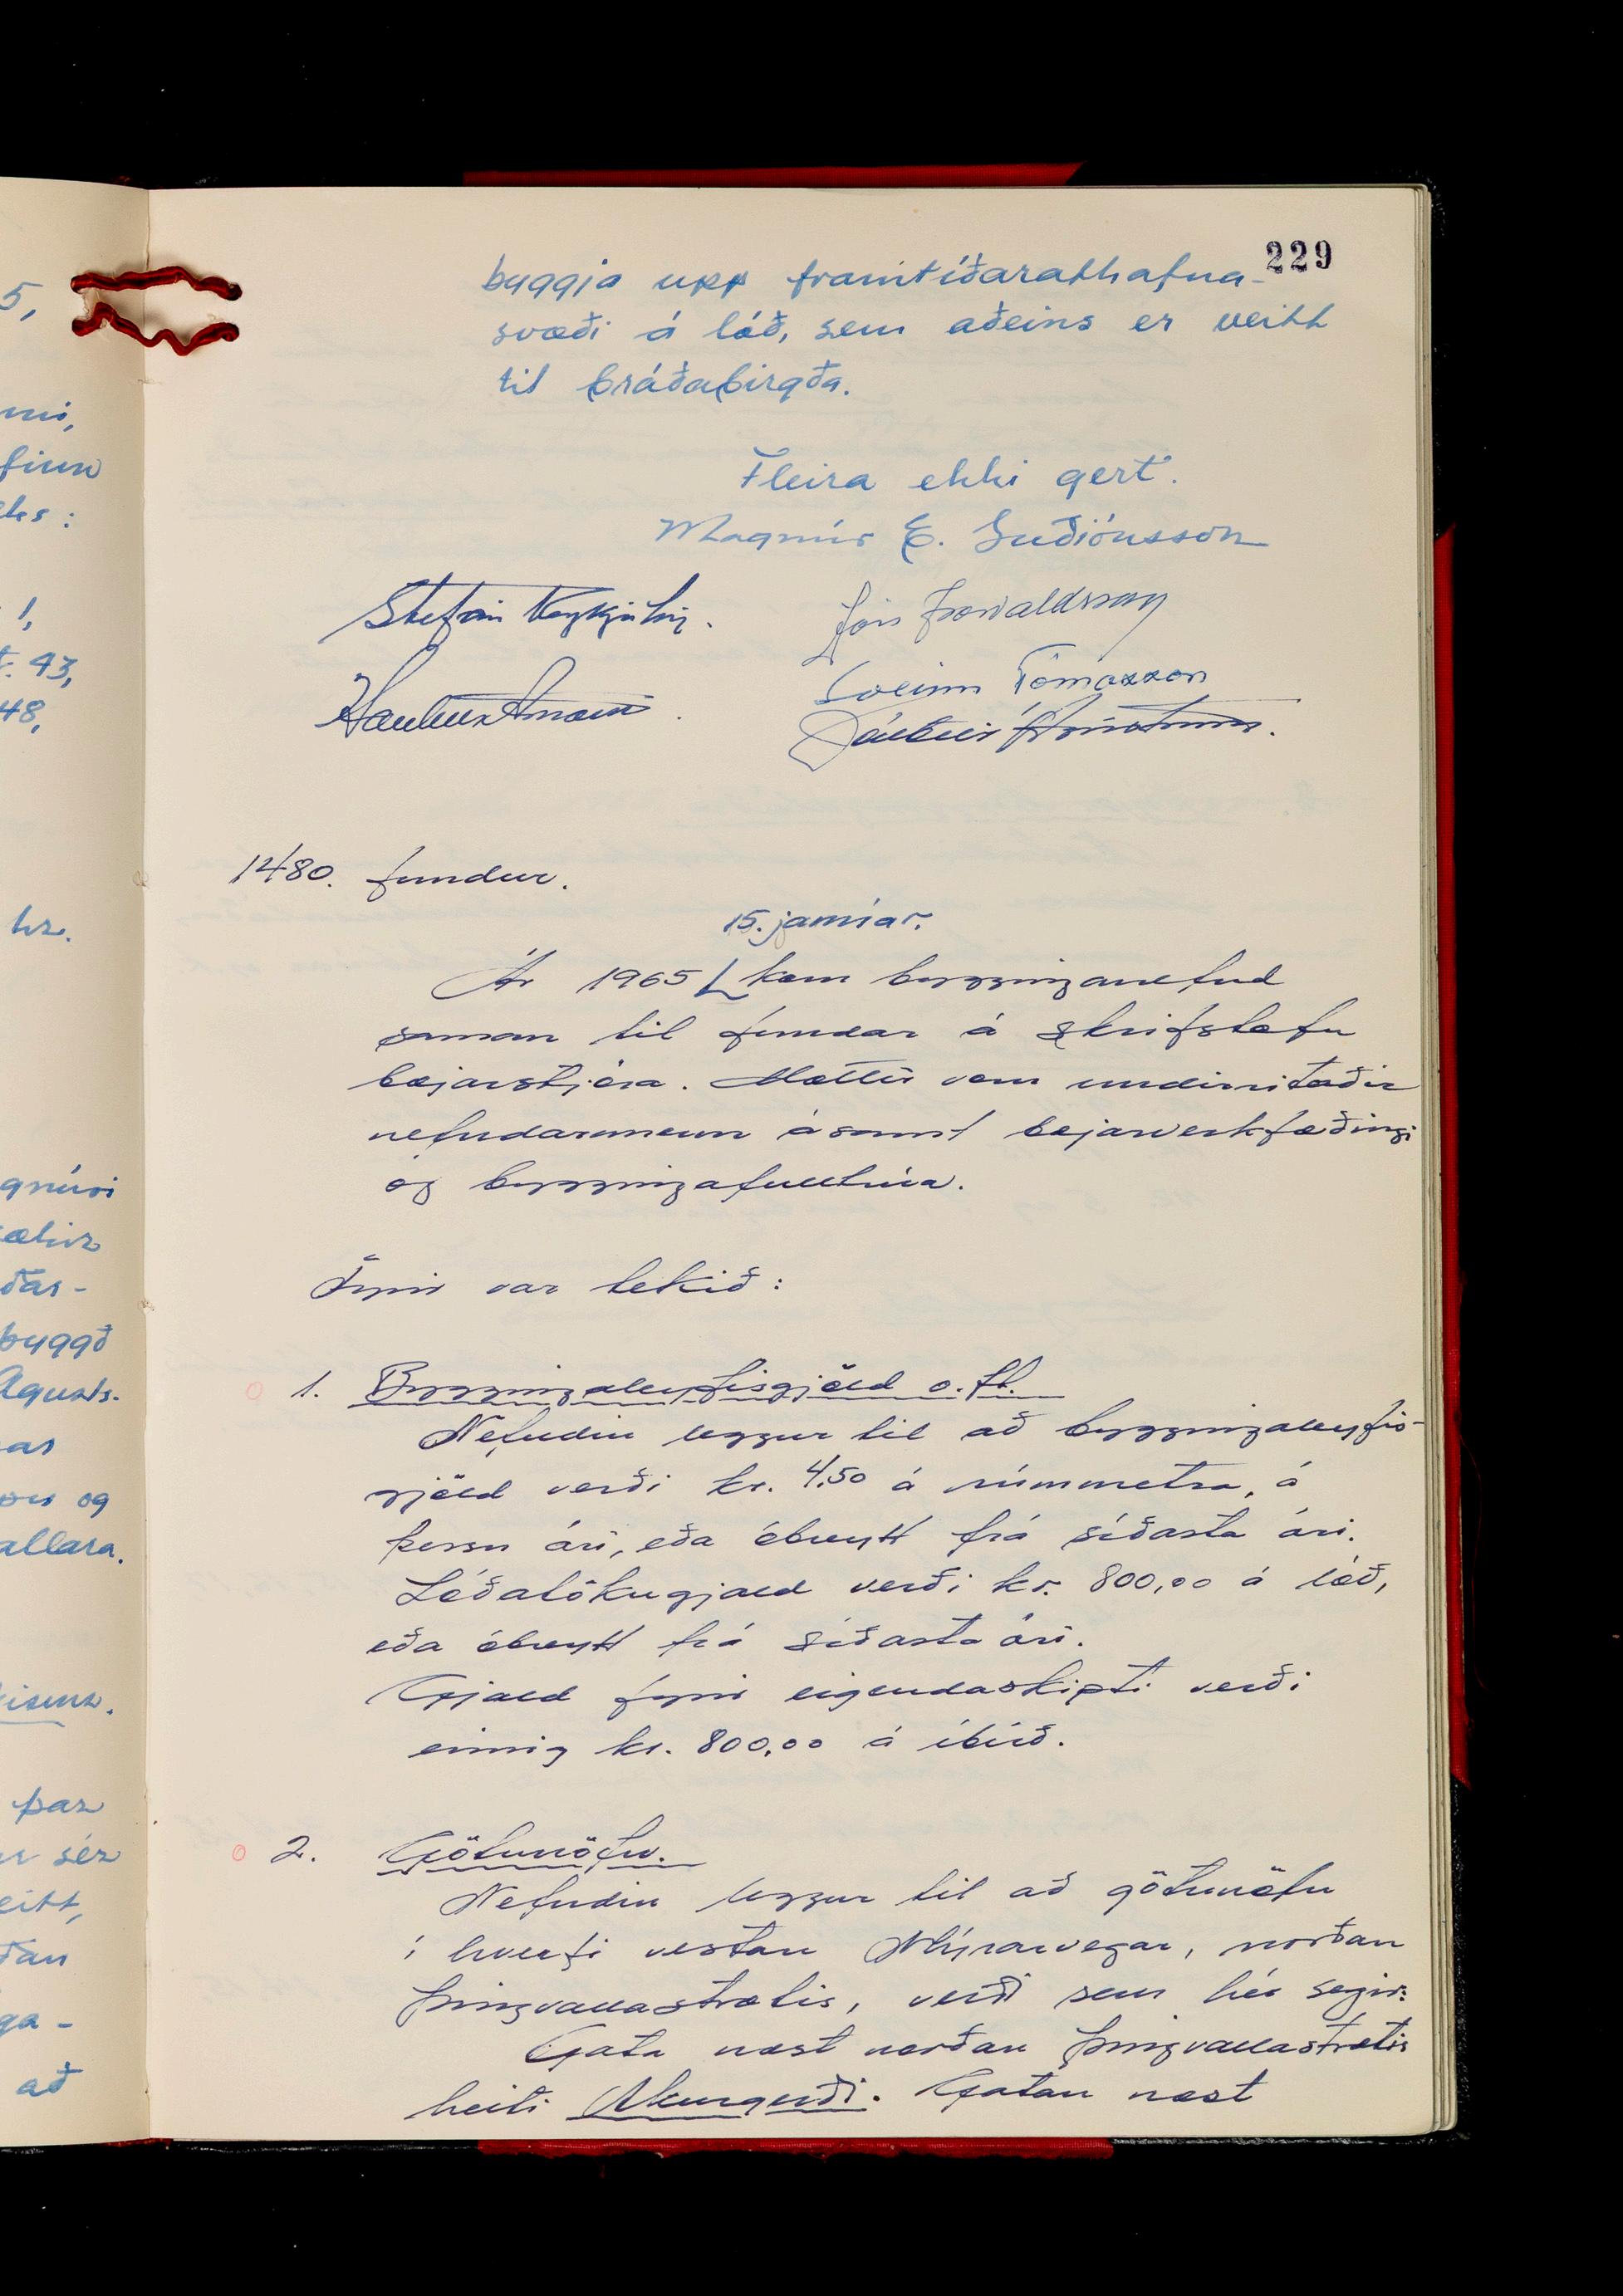 229
byggja upp framtíðarathafna-
svæði á lóð, sem aðeins er veitt
til bráðabirgða.
Fleira ekki gert.
Magnús E. Guðjónsson
Stefán Reykjalín.
Jón Þorvaldsson
Haukur Árnason
Sveinn Tómasson
1480. fundur.
15. janúar.
Ár 1965 kom bygginganefnd
saman til fundar á skrifstofu
bæjarstjóra. Mættir voru undirritaðir
nefndarmenn ásamt bæjarverkfræðingi
og byggingafulltrúa.
Fyrir var tekið:
1. Byggingaleyfisgjöld o.fl.
Nefndin leggur til að byggingaleyfis-
gjöld verði kr. 4.50 á rúmmetra, á
þessu ári, eða óbreytt frá síðasta ári.
Lóðatökugjald verði kr. 800,00 á lóð,
eða óbreytt frá síðasta ári.
Gjald fyrir eigendaskipti verði
einnig kr. 800,00 á íbúð.
2. Götunöfn.
Nefndin leggur til að götunöfn
í hverfi vestan Mýrarvegar, norðan
Þingvallastrætis, verði sem hér segir:
Gata næst norðan Þingvallastrætis
heiti Akurgerði. Gatan næst
5,
hr.
gnúsi
ðar-
byggð
Agusts.
og
allara.
þar
sér
eitt,
ðan
ga-
að